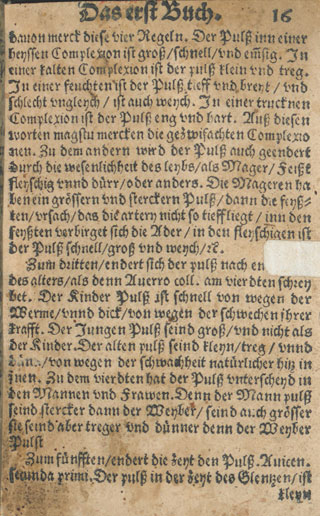 Das erst Buch. 16
dauon merck diese vier Regeln. Der Pulß inn einer
heyssen Complexion ist groß/schnell/vnd emsig. In
einer kalten Complexion ist der pulß klein vnd treg.
In einer feuchten ist der Pulß tieff vnd breyt / vnd
schlecht vngleych / ist auch weych. In einer trucknen
Complexion ist der Pulß eng vnd hart. Auß diesen
worten magstu mercken die gezwifachten Complexio
nen. Zu dem andern wird der Pulß auch geendert
durch die wesenlichheit des leybs/als Mager/Feißt
fleyschig vnnd dürr/oder anders. Die Mageren ha
ben ein grössern vnd sterckern Pulß/dann die feyß-
ten/vrsach/das die artery nicht so tieff liegt / inn den
feyßten verbirget sich die Ader / in den fleyschigen ist
der Pulß schnell/groß vnd weych/ꝛc.
Zum dritten/endert sich der pulß nach
des alters/als denn Auerro coll. am vierdten schrey
bet. Der Kinder Pulß ist schnell von wegen der
Werme/vnnd dick/von wegen der schwechen jhrer
krafft. Der Jungen Pulß seind groß/vnd nicht als
der Kinder. Der alten pulß seind kleyn/treg / vnnd
/von wegen der schwachheit natürlicher hitz in
jnen. Zu dem vierdten hat der Pulß vnterscheyd in
den Mannen vnd Frawen. Denn der Mann pulß
seind stercker dann der Weyber / seind auch grösser
sie seind aber treger vnd dünner denn der Weyber
Pulst
Zum fünfften/endert die zeyt den Pulß. Auicen.
secunda primi. Der pulß in der zeyt des Glentzen/ist
kleyn